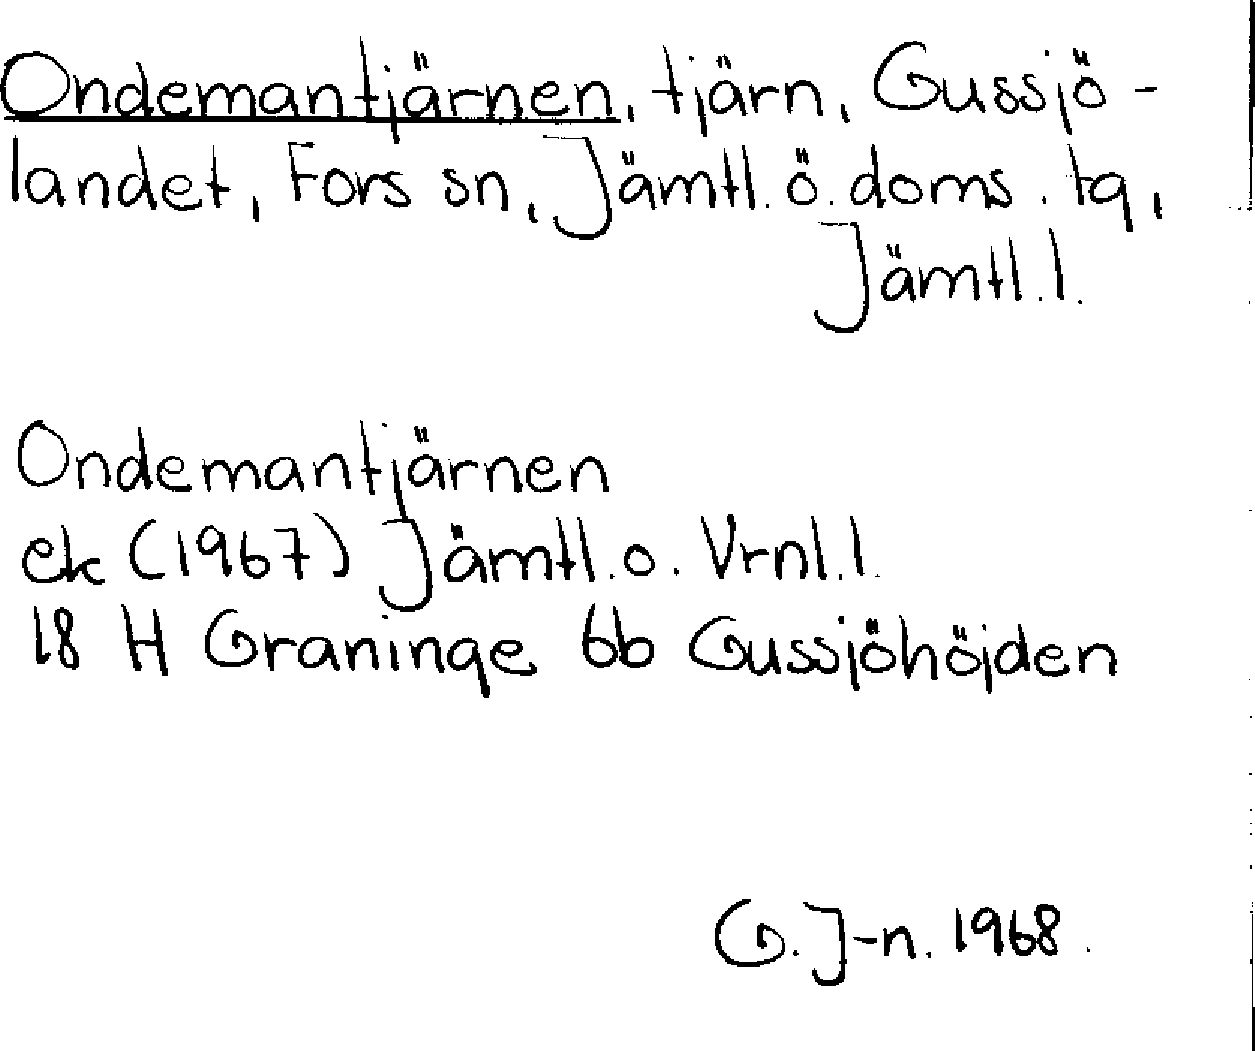 Ondemantjärnen, tjärn, Gussjö-
landet, Fors sn, Jämtl. ö. doms. tg,
Jämtl. l.
Ondemantjärnen
ek (1967) Jämtl. o. Vrnl. l.
18 H Graninge 6b Gussjöhöjden
G. J-n. 1968.